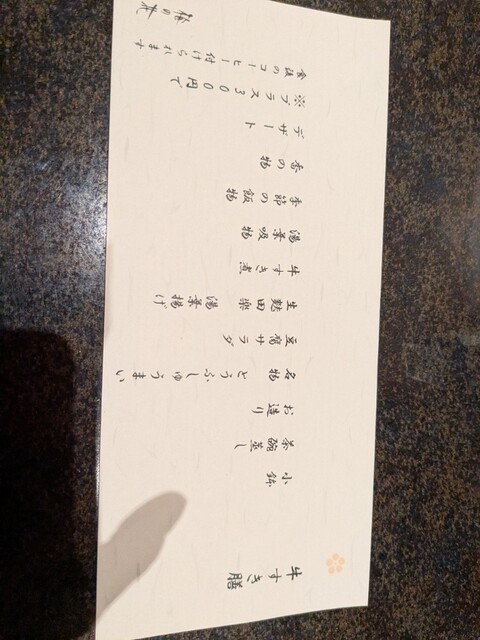 牛すき膳
小鉢
茶碗蒸し
お造り
名物 とうふしゅうまい
豆腐サラダ
生麩田楽 湯葉揚げ
牛すき煮
湯葉吸物
季節の飯物
香の物
デザート
※プラス300円で
食後のコーヒー付けられます
梅の花